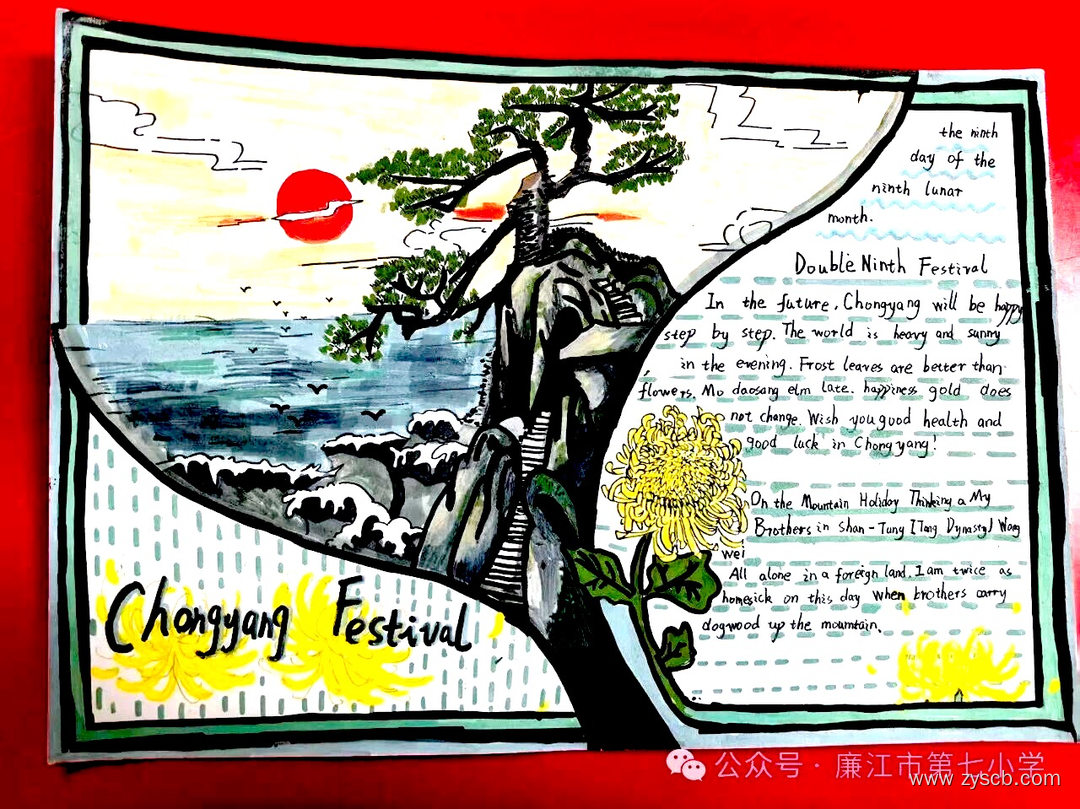 the ninth
day of the
ninth lunar
month.
Double Ninth Festival
In the future, Chongyang will be happy
step by step. The world is heavy and sunny
in the evening. Frost leaves are better than
flowers. Mo daosang elm late. happiness gold does
not change. Wish you good health and
good luck in Chongyang!
On the Mountain Holiday Thinking a My
Brothers in Shan-Tung [Tang Dynasty] Wang
wei
All alone in a foreign land, I am twice as
homesick on this day when brothers carry
dogwood up the mountain.
Chongyang Festival
公众号·廉江市第七小学
www.zyscb.com